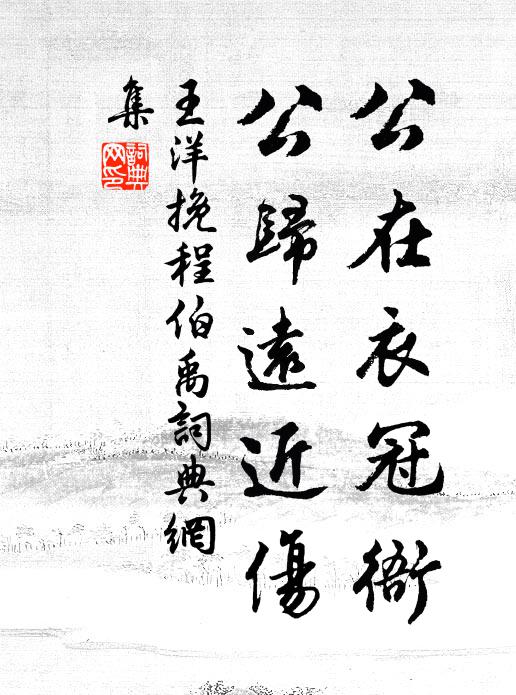 公在衣冠衙
公歸遠近傷
王洋挽程伯禹詞典網
集
詞典
网印